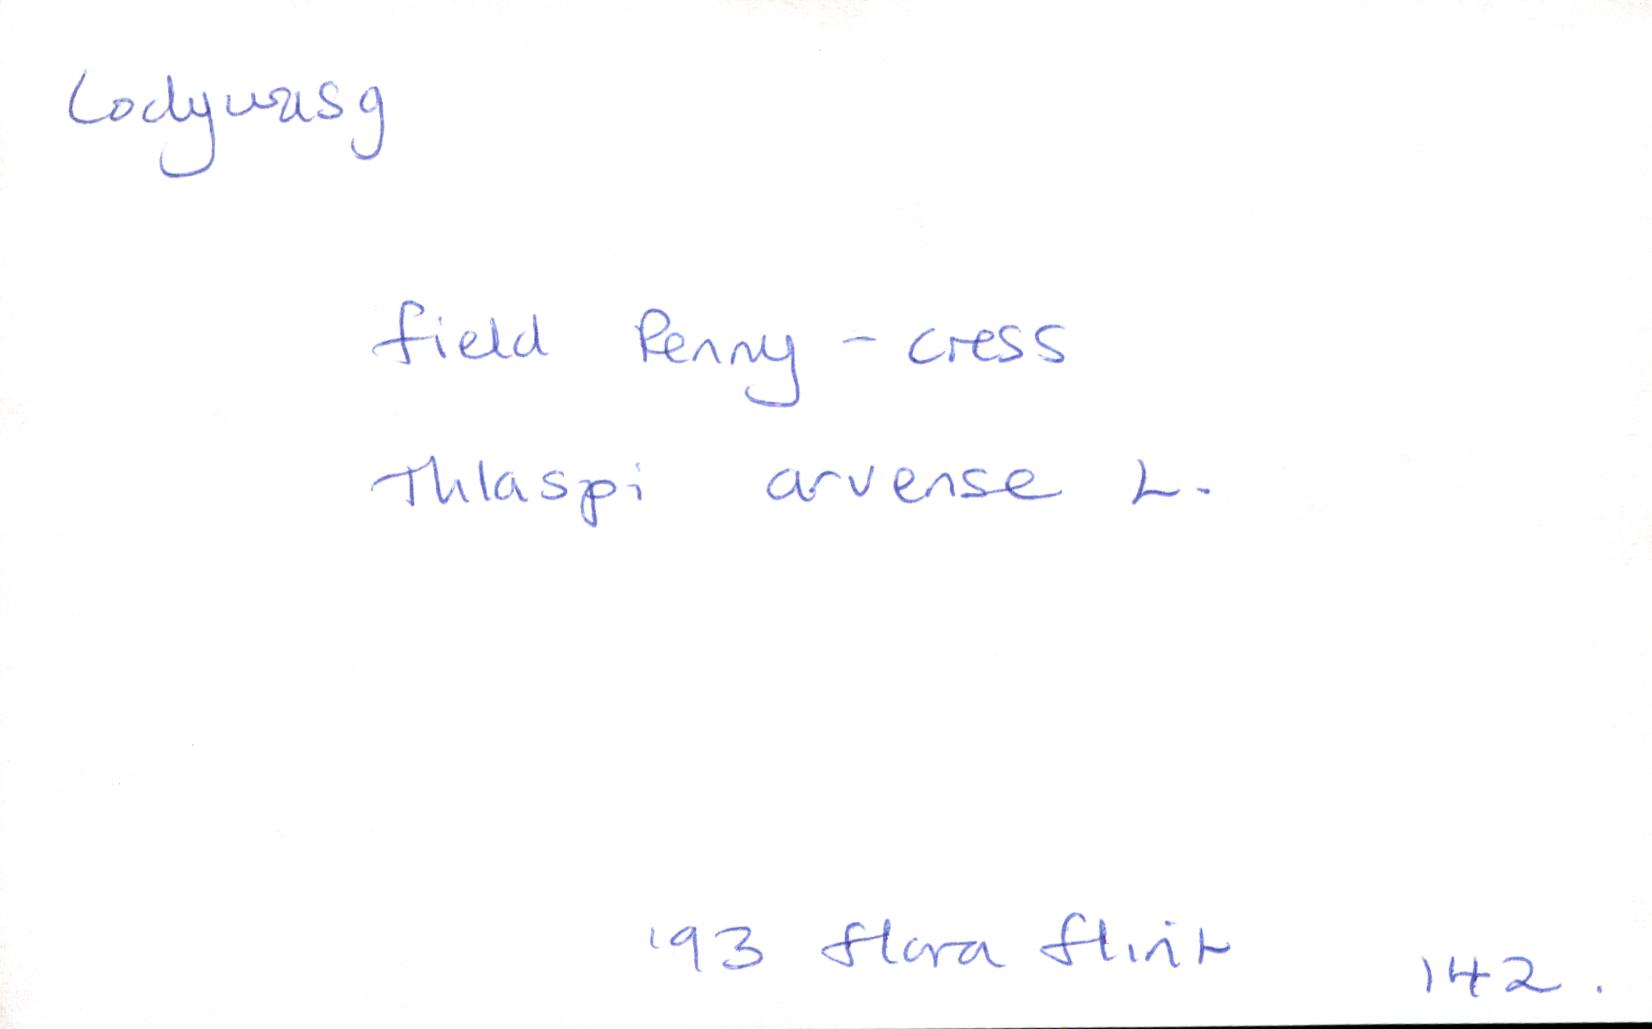 Codywasg
field Penny - cress
Thlaspi arvense L.
'93 flora flint 142.